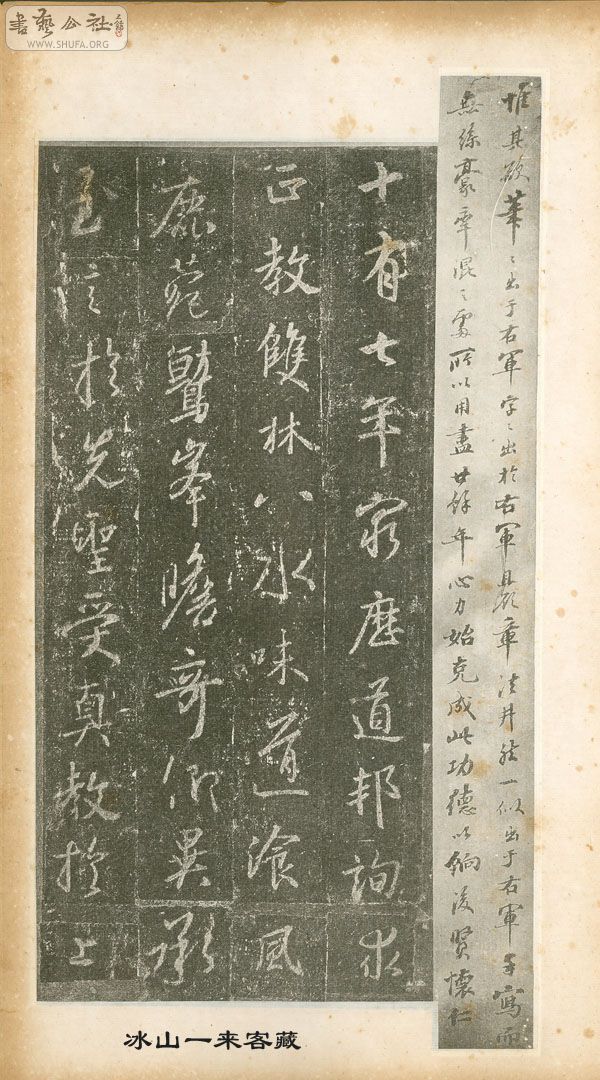 書藝公社
WWW.SHUFA.ORG
惟其欲筆〻出于右軍字〻出於右軍且章法井然一似出于右軍手寫而
無絲豪牽混之處所以用盡廿餘年心力始克成此功德以餉後賢懷仁
十有七年窮歷道邦詢求
正教雙林八水味道飡風
鹿菀鷲峯瞻奇仰異承
至言於先聖受真教於上
冰山一来客藏